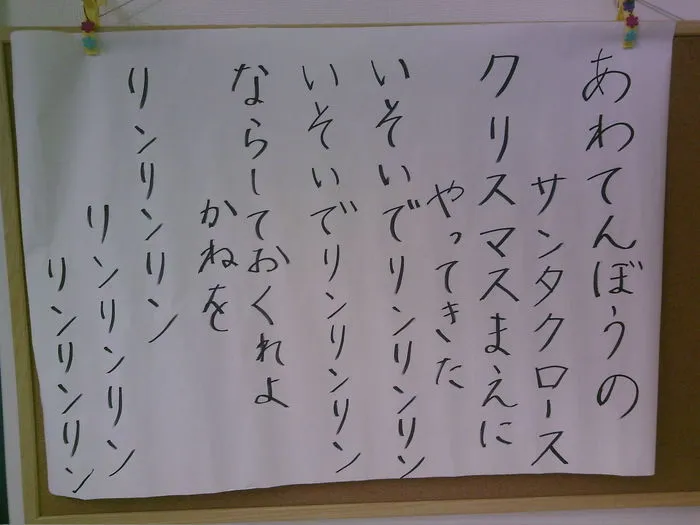 あわてんぼうの
サンタクロース
クリスマスまえに
やってきた
いそいでリンリンリン
いそいでリンリンリン
ならしておくれよ
かねを
リンリンリン
リンリンリン
リンリンリン